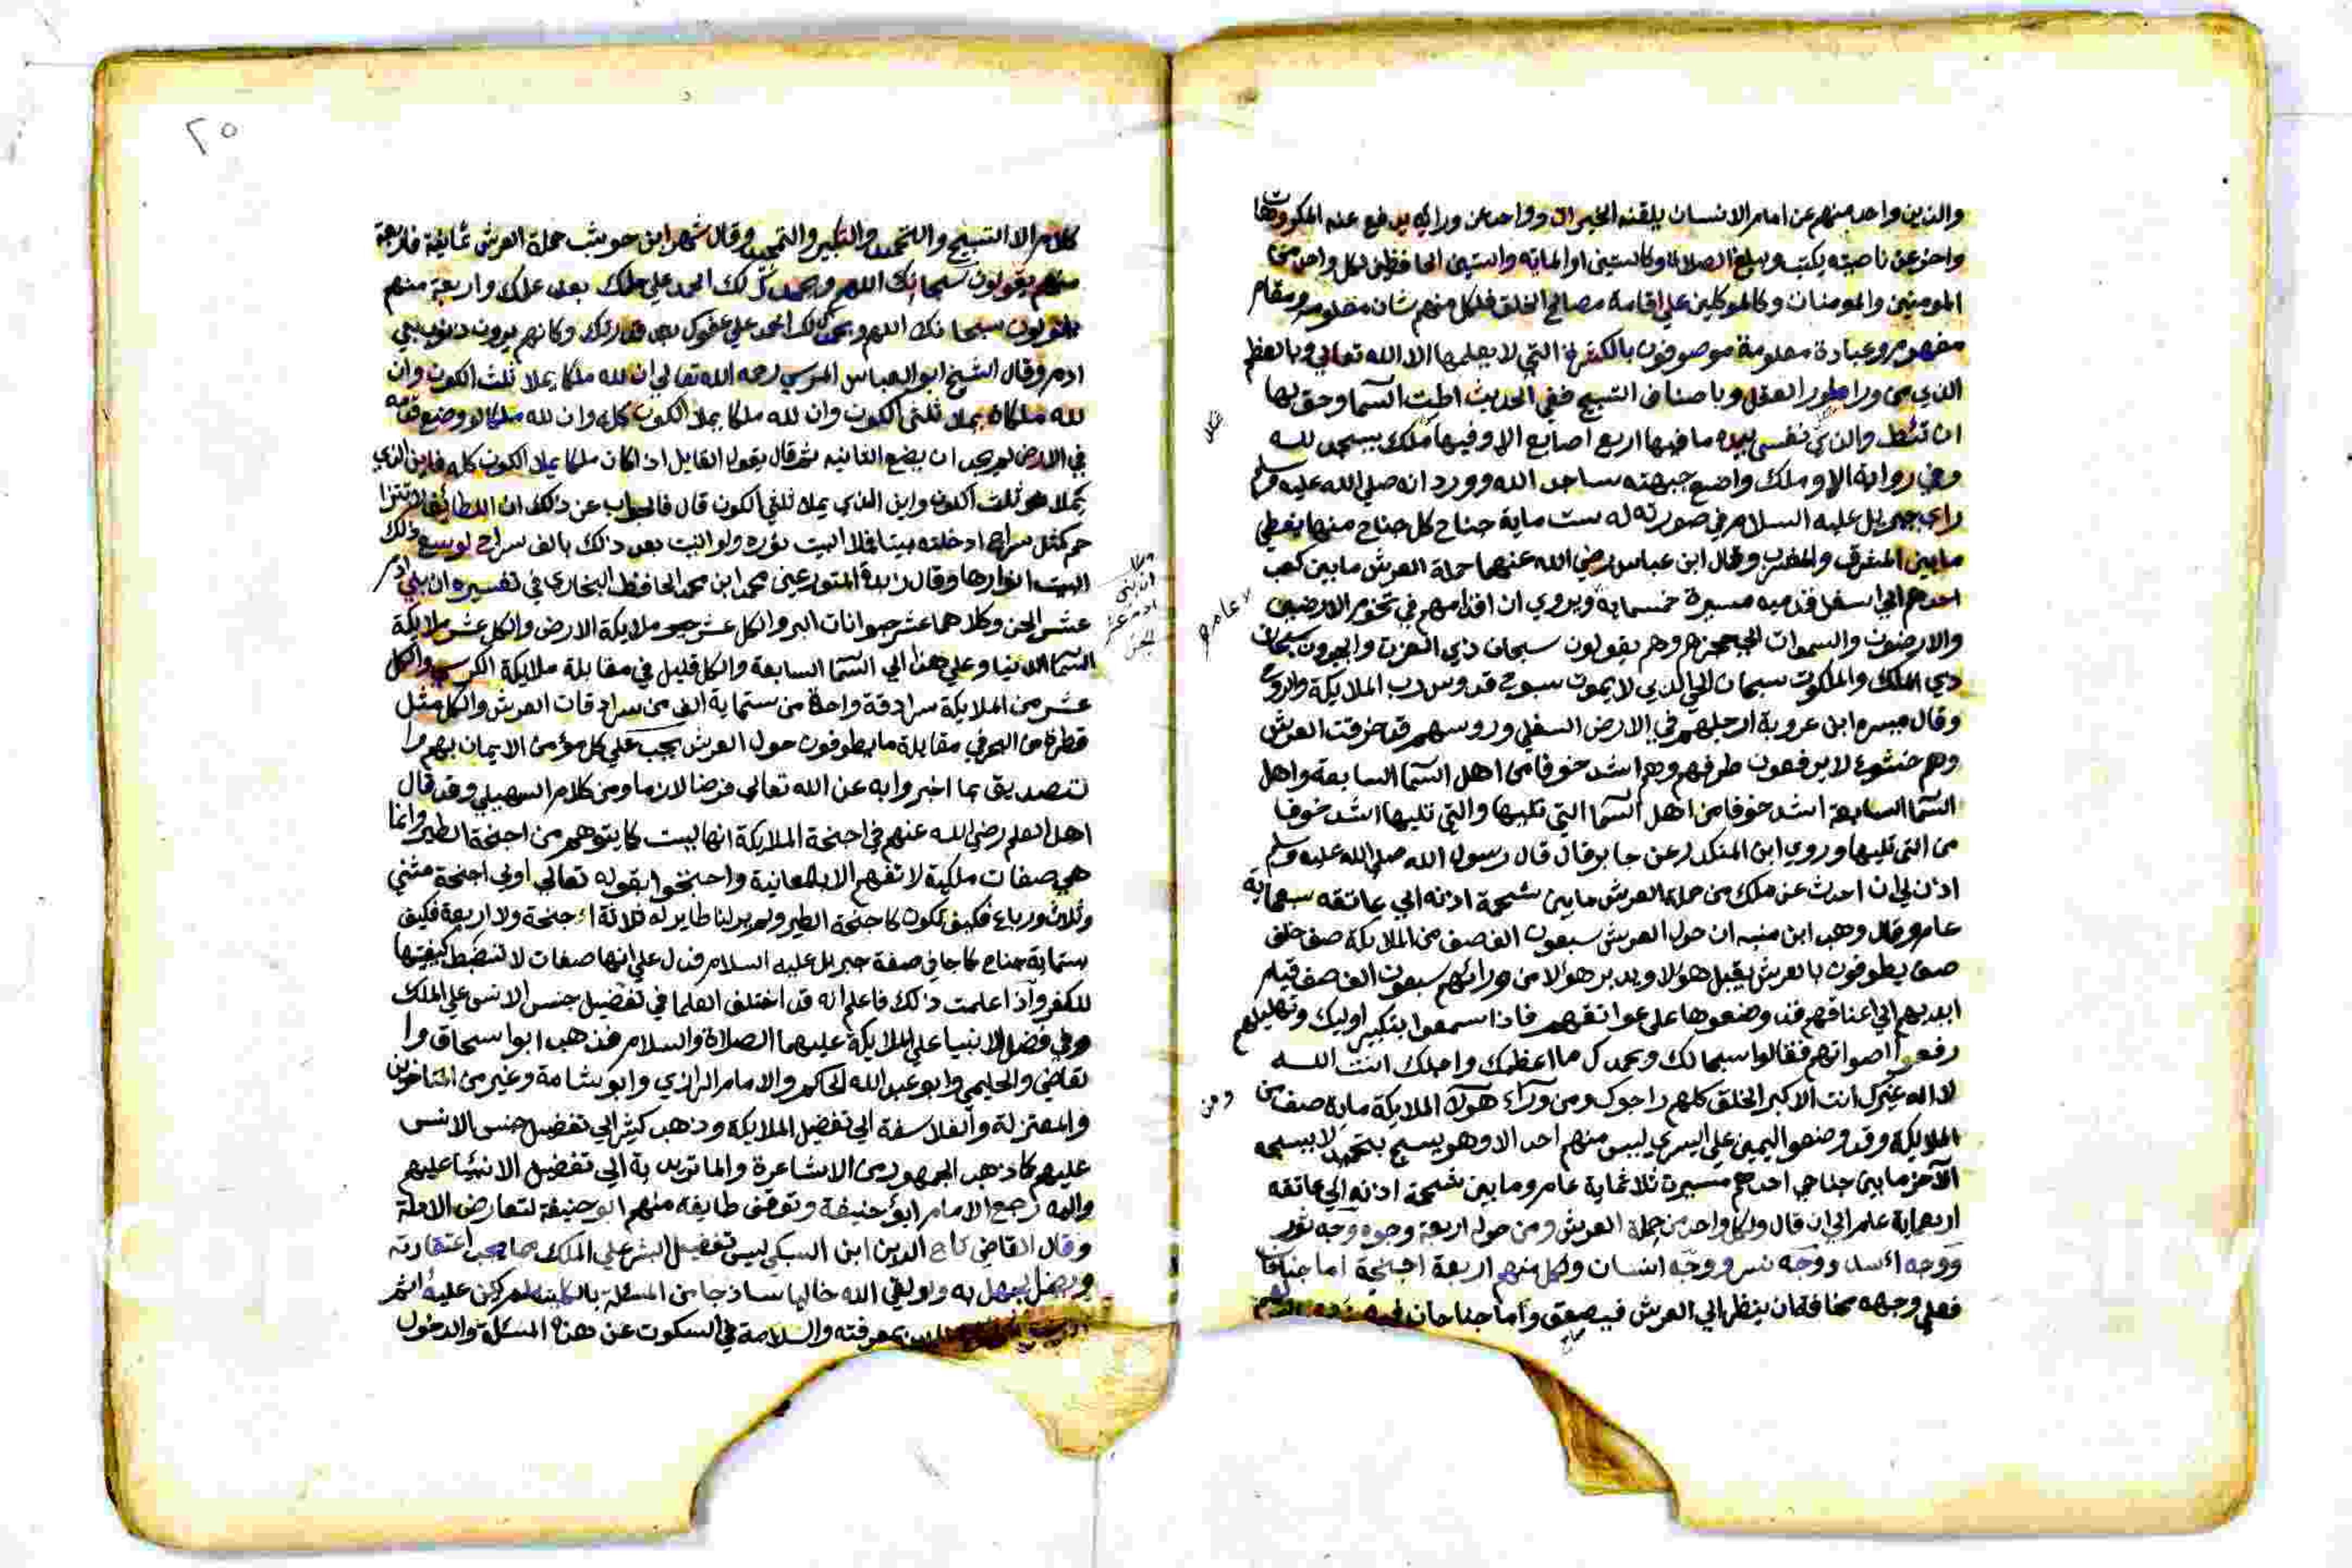 والذين واحد منهم عن امام الانسان يلقنه الخيرات وواحد من ورائه يدفع عنه المكروهات
واخر عن ناصيته يكتب ويبلغ الصلاة وكالستين او الماية والستين الحافظين لكل واحد من
المومنين والمومنات وكالموكلين على اقامة مصالح الخلق فلكل منهم شان معلوم ومقام
مفهوم وعبادة معلومة موصوفون بالكثرة التي لا يعلمها الا الله تعالي وبالعظم
الذي من ورا طور العقل وباصناف التسبيح ففي الحديث اطت السما وحق لها
ان تئط والذي نفسي بيده ما فيها اربع اصابع الا وفيها ملك يسجد لله
وفي رواية الا وملك واضع جبهته ساجد الله وورد انه صلى الله عليه وسلم
راي جبريل عليه السلام في صورته له ست ماية جناح كل جناح منها يغطي
مابين المشرق والمغرب وقال ابن عباس رضي الله عنهما حملة العرش ما بين كعب
احدهم الي اسفل قدميه مسيرة خمسماية ويروي ان اقدامهم في تخوم الارضين
عام
والارضون والسموات الي حجزهم وهم يقولون سبحان ذي العزت والجبروت سبحان
ذي الملك والملكوت سبحان الحي الذي لا يموت سبوح قدوس رب الملايكة والروح
وقال ميسره ابن عروبة ارجلهم في الارض السفلي وروسهم قد خرقت العرش
وهم خشوع لا يرفعون طرفهم وهم اشد خوفا من اهل السما السابعة واهل
السما السابعة اشد خوفا من اهل السما التي تليها والتي تليها اشد خوفا
من التي تليها وروي ابن المنكدر عن جابر قال قال رسول الله صلي الله عليه وسلم
اذن لي ان احدث عن ملك من حملة العرش مابين شحمة اذنه الي عاتقه سبعماية
عام وقال وهب ابن منبه ان حول العرش سبعون الف صف من الملايكة صف خلف
صف يطوفون بالعرش يقبل هولا ويدبر هولا من ورائهم سبعون الف صف قيام
ايديهم الي اعناقهم قد وضعوها على عواتقهم فاذا سمعوا بتكبير اوليك وتهليلهم
رفعوا اصواتهم فقالوا سبحانك وبحمدك ما اعظمك واجلك انت الله
لا اله غيرك انت الاكبر الخلق كلهم راجوك ومن ورآء هولآ الملايكة ماية صف من
ومن
الملايكة وقد وضعوا اليمين علي اليسري ليس منهم احد الا وهو يسبح بتحميد لا يسبحه
الآخر مابين جناحي احدهم مسيرة ثلاثماية عام ومابين شحمة اذنه الي عاتقه
اربعماية عام الي ان قال ولكل واحد من حملة العرش ومن حوله اربعة وجوه وجه ثور
ووجه اسد ووجه نسر ووجه انسان ولكل منهم اربعة اجنحة اما جناحان
فعلي وجهه مخافة ان ينظر الي العرش فيصعق واما جناحان
٢٥
كلام الا التسبيح والتحميد والتكبير والتمجيد وقال شهر ابن حوشب حملة العرش ثمانية فاربعة
منهم يقولون سبحانك اللهم وبحمدك لك الحمد علي حلمك بعد علمك واربعة منهم
يقولون سبحانك اللهم وبحمدك لك الحمد علي عفوك بعد قدرتك وكانهم يرون ذنوب بني
ادم وقال الشيخ ابو العباس المرسي رحمه الله تعالي ان لله ملكا يملا ثلث الكون وان
لله ملكا يملا ثلثي الكون وان لله ملكا يملا الكون كله وان لله ملكا لو وضع قدمه
في الارض لم يجد ان يضع الثانيه ثم قال يقول القايل اذا كان ملكا يملا الكون كله فاين الذي
يملا هو ثلث الكون واين الذي يملا ثلثي الكون قال فالجواب عن ذلك ان اللطائف لا تتزا
حم كمثل سراج ادخلته بيتا فملا البيت نوره ولو اتيت بعد ذلك بالف سراج لوسع ذلك
البيت انوارها وقال زبدة المتورعين محمد ابن محمد الحافظ البخاري في تفسيره ان بني ادم
عشر الجن وكلاهما عشر حيوانات البر والكل عشر حيو ملايكة الارض والكل عشر ملايكة
ان بني
ادم عشر
الجن
السما الدنيا وعلي هذا الي السما السابعة والكل قليل في مقابلة ملايكة الكرسي والكل
عشر من الملايكة سرادقة واحدة من ستماية الف من سرادقات العرش والكل مثل
قطرة من البحر في مقابلة ما يطوفون حول العرش يجب علي كل مؤمن الايمان بهم وا
لتصديق بما اخبروا به عن الله تعالى فرضا لازما ومن كلام السهيلي وقد قال
اهل العلم رضي الله عنهم في اجنحة الملايكة انها ليست كما يتوهم من اجنحة الطير وانما
هي صفات ملكية لا تفهم الا بالمعاينة واحتجوا بقوله تعالي اولى اجنحة مثني
وثلاث ورباع فكيف تكون كاجنحة الطير ولم ير لنا طاير له ثلاثة اجنحة ولا اربعة فكيف
ستماية جناح كما جا في صفة جبريل عليه السلام فدل علي انها صفات لا تنضبط كيفيتها
للكفر واذا علمت ذلك فاعلم انه قد اختلف العلما في تفضيل جنس الانس علي الملك
وفي فضل الانبيا علي الملايكة عليهما الصلاة والسلام فذهب ابوا سحاق وا
لقاضي والحليمي وابو عبد الله الحاكم والامام الرازي وابو شامة وغير من المتاخرين
والمعتزلة والفلاسفة الي تفضيل الملايكة وذهب كثير الي تفضيل جنس الانس
عليهم كما ذهب الجمهور من الاشاعرة والماتريدية الي تفضيل الانبيا عليهم
واليه رجع الامام ابو حنيفة وتوقف طايفة منهم ابو حنيفة لتعارض الادلة
وقال القاضي تاج الدين ابن السبكي ليس تفضيل البشر علي الملك مما يجب اعتقاده
ويضل بجهل به ولو لقي الله خاليا ساذجا من المسئلة بالكلية لم يكن عليه اثم
بمعرفته والسلامة في السكوت عن هذه المسئلة والدخول